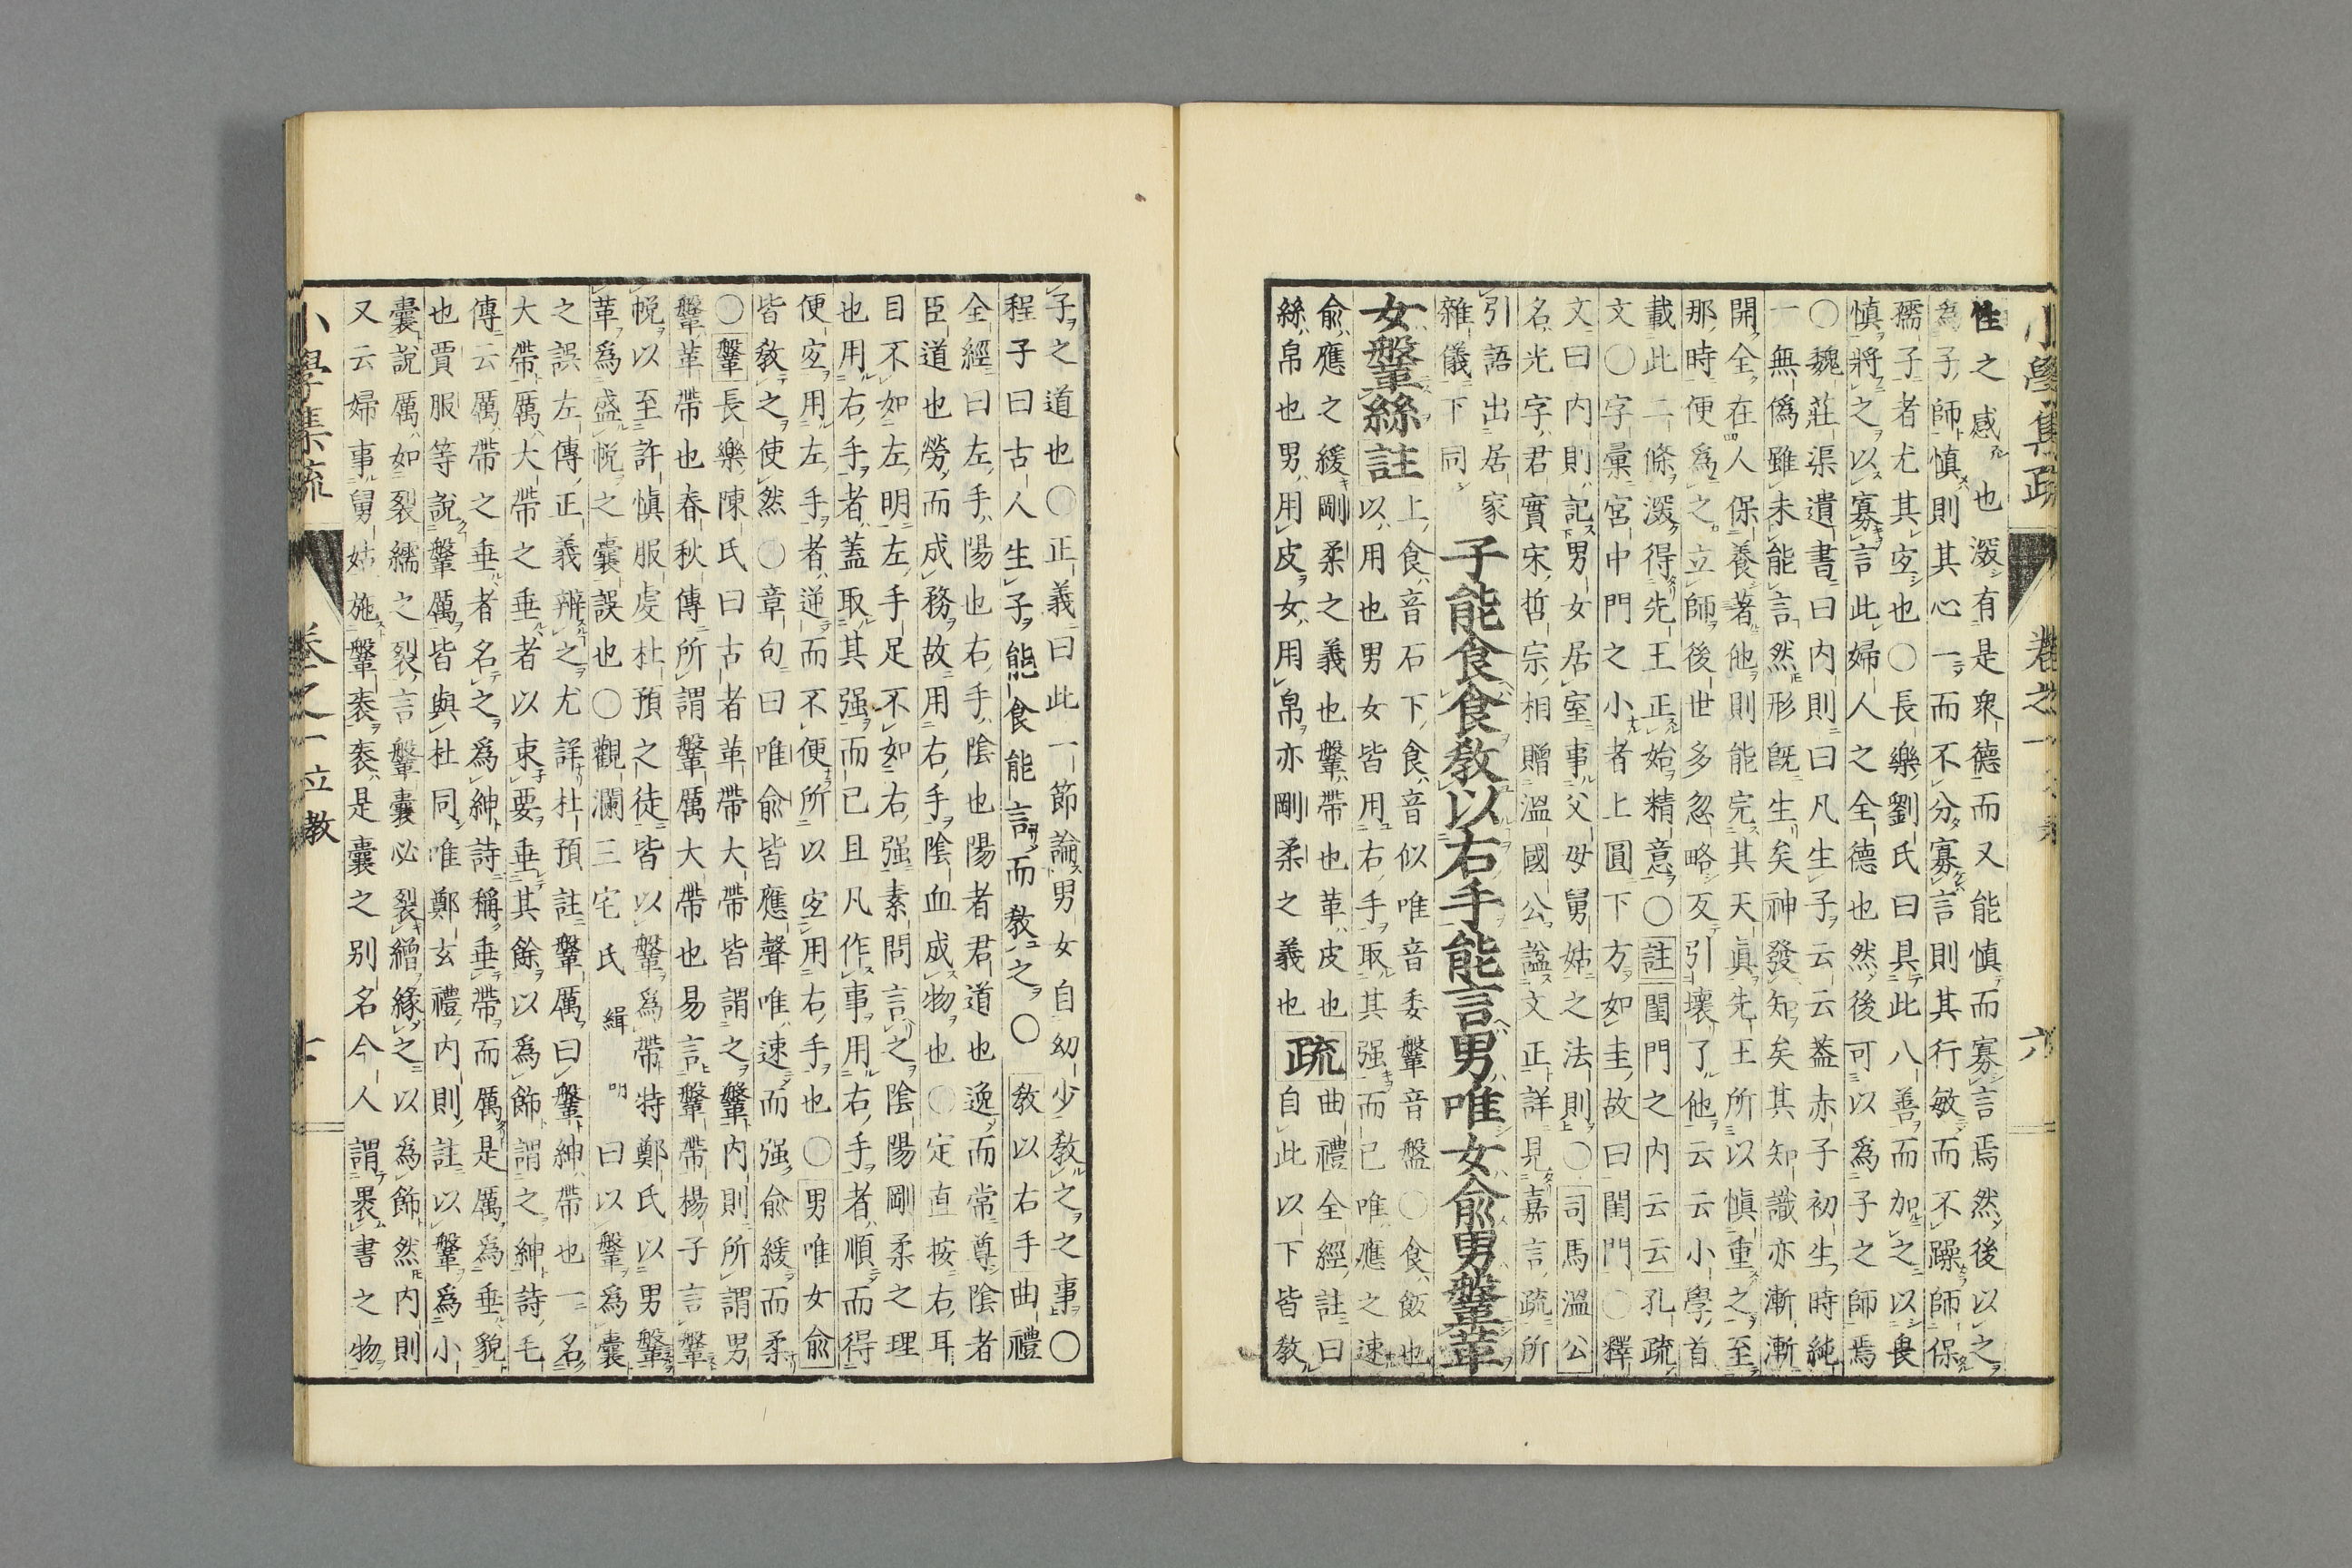 小學集疏　卷之一　六
性之感也深有是衆德而又能慎而寡言焉然後以之
爲子師慎則其心一而不分寡言則其行敏而不躁師保
孺子者尤其宐也〇長樂劉氏曰具此八善而加之以良
慎將之以寡言此婦人之全德也然後可以爲子之師焉
〇魏莊渠遺書曰内則曰凡生子云云葢赤子初生時純
一無僞雖未能言然形既生矣神發知矣其知識亦漸漸
開全在人保養著他則能完其天眞先王所以慎重之至
那時便爲之立師後世多忽略反引壞了他云云小學首
載此二條深得先王正始精意〇註閨門之内云云孔疏
文〇字彙宮中門之小者上圓下方如圭故曰閨門〇釋
文曰内則記男女居室事父母舅姑之法則〇司馬溫公
名光字君實宋哲宗相贈溫國公諡文正詳見嘉言疏所
引語出居家
雜儀下同
子能食食敎以右手能言男唯女俞男鞶革
女鞶絲註
上食音石下食音似唯音委鞶音盤〇食飯也
以用也男女皆用右手取其强而已唯應之速
俞應之緩剛柔之義也鞶帶也革皮也
絲帛也男用皮女用帛亦剛柔之義也
疏
曲禮全經註曰
自此以下皆敎
子之道也〇正義曰此一節論男女自幼少敎之之事〇
程子曰古人生子能食能言而敎之〇敎以右手曲禮
全經曰左手陽也右手陰也陽者君道也逸而常尊陰者
臣道也勞而成務故用右手陰血成物也〇定直按右耳
目不如左明左手足不如右强素問言之陰陽剛柔之理
也用右手者蓋取其强而已且凡作事用右手者順而得
便宐用左手者逆而不便所以宐用右手也〇男唯女俞
皆敎之使然〇章句曰唯俞皆應聲唯速而强俞緩而柔
〇鞶長樂陳氏曰古者革帶大帶皆謂之鞶内則所謂男
鞶革帶也春秋傳所謂鞶厲大帶也易言鞶帶楊子言鞶
帨以至許慎服虔杜預之徒皆以鞶爲帶特鄭氏以男鞶
革爲盛帨之囊誤也〇觀瀾三宅氏緝明曰以鞶爲囊
之誤左傳正義辨之尤詳杜預註鞶厲曰鞶紳帶也一名
大帶厲大帶之垂者以束要垂其餘以爲飾謂之紳詩毛
傳云厲帶之垂者名之爲紳詩稱垂帶而厲是厲爲垂貌
也賈服等說鞶厲皆與杜同唯鄭玄禮内則註以鞶爲小
囊說厲如裂繻之裂言鞶囊必裂繒緣之以爲飾然内則
又云婦事舅姑施鞶袠袠是囊之别名今人謂裹書之物
小學集疏　卷之一立教　七